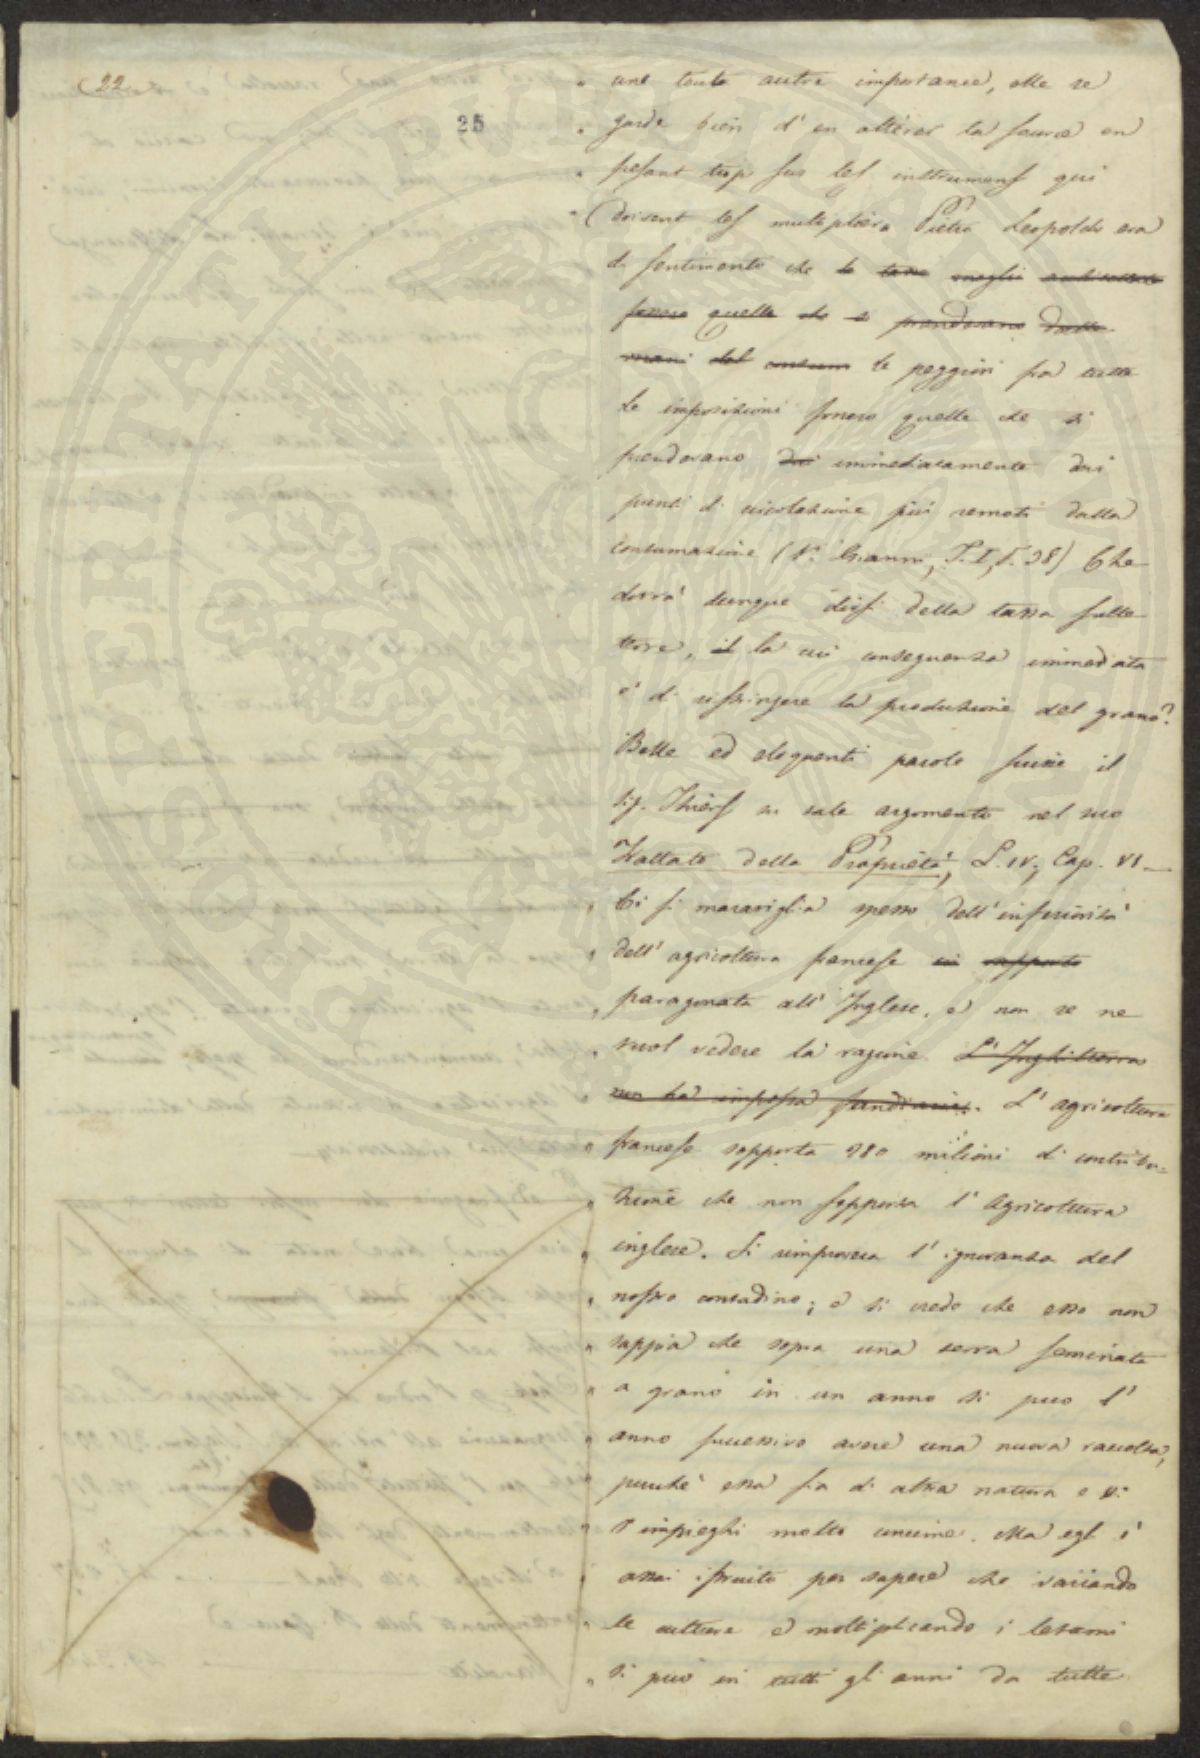 (22
25
" une toute autre importance, elle se
" garde bien d'en altérer la source en
" pesant trop sur les instrumens qui
" doivent les multiplier. Pietro Leopoldo era
di sentimento che le tasse meglio
fossero quelle che si prendevano dalle
mani del le peggiori fra tutte
le imposizioni fossero quelle che si
prendevano dai immediatamente dai
punti di circolazione più remoti dalla
consumazione (V. Gianni, T. I, f. 98) Che
dovrà dunque dirsi della tassa sulle
terre, il la cui conseguenza immediata
è di ristringere la produzione del grano?
Belle ed eloquenti parole scrive il
Sig. Thiers su tale argomento nel suo
Trattato della Proprietà, L. IV, Cap. VI —
" Ci si maraviglia spesso dell'inferiorità
" dell'agricoltura francese in rapporto
" paragonata all'Inglese, e non se ne
" suol vedere la ragione. L'Inghilterra
" non ha imposta fondiaria. L'agricoltura
" francese sopporta 280 milioni di contribu-
" zione che non sopporta l'Agricoltura
" inglese. Si rimprovera l'ignoranza del
" nostro contadino; e si crede che esso non
" sappia che sopra una terra seminata
" a grano in un anno si può l'
" anno successivo avere una nuova raccolta,
" purché essa sia di altra natura e vi
" s'impieghi molto concime. Ma egli è
" assai istruito per sapere che variando
" le culture e moltiplicando i letami
" si può in tutti gli anni da tutte